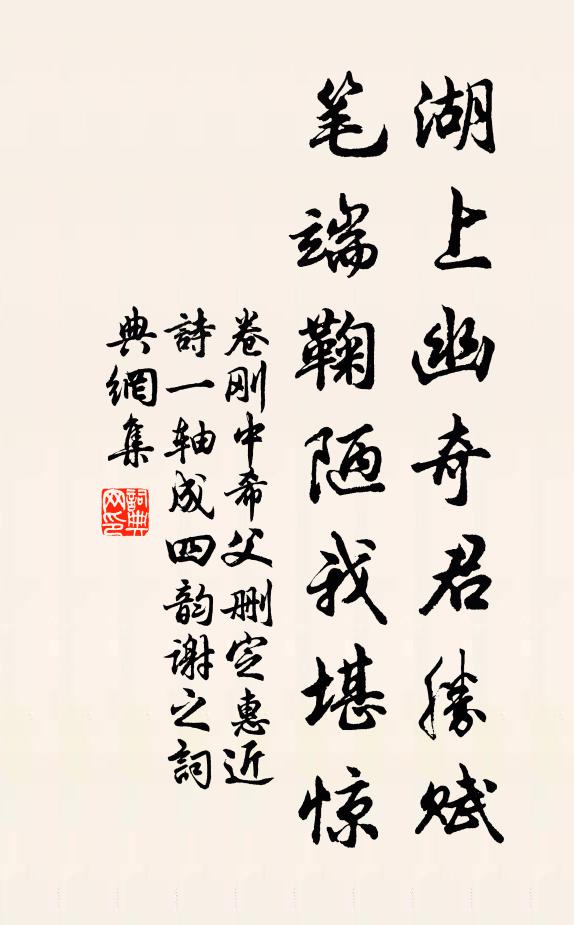 湖上幽奇君勝赋
笔端鞠陋我堪惊
卷刚中希父删定惠近
詩一轴成四韵谢之詞
典網集
詞典网印